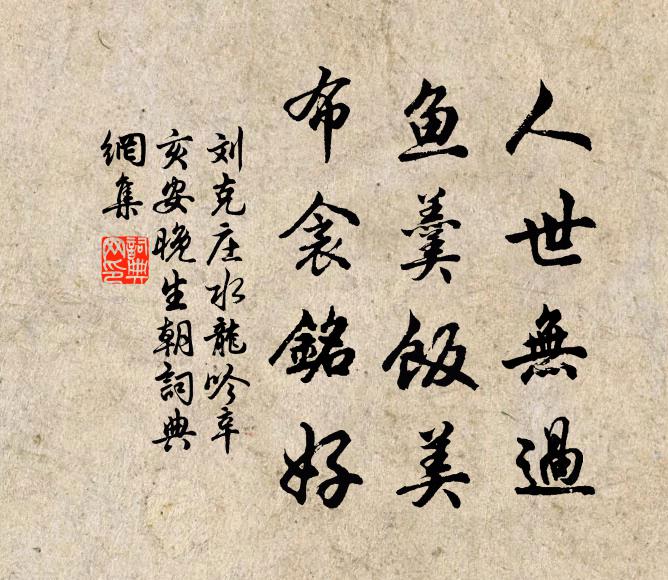 人世無過
鱼羹飯美
布衾銘好
刘克庄水龍吟辛
亥安晚生朝詞典
網集
詞典
网印